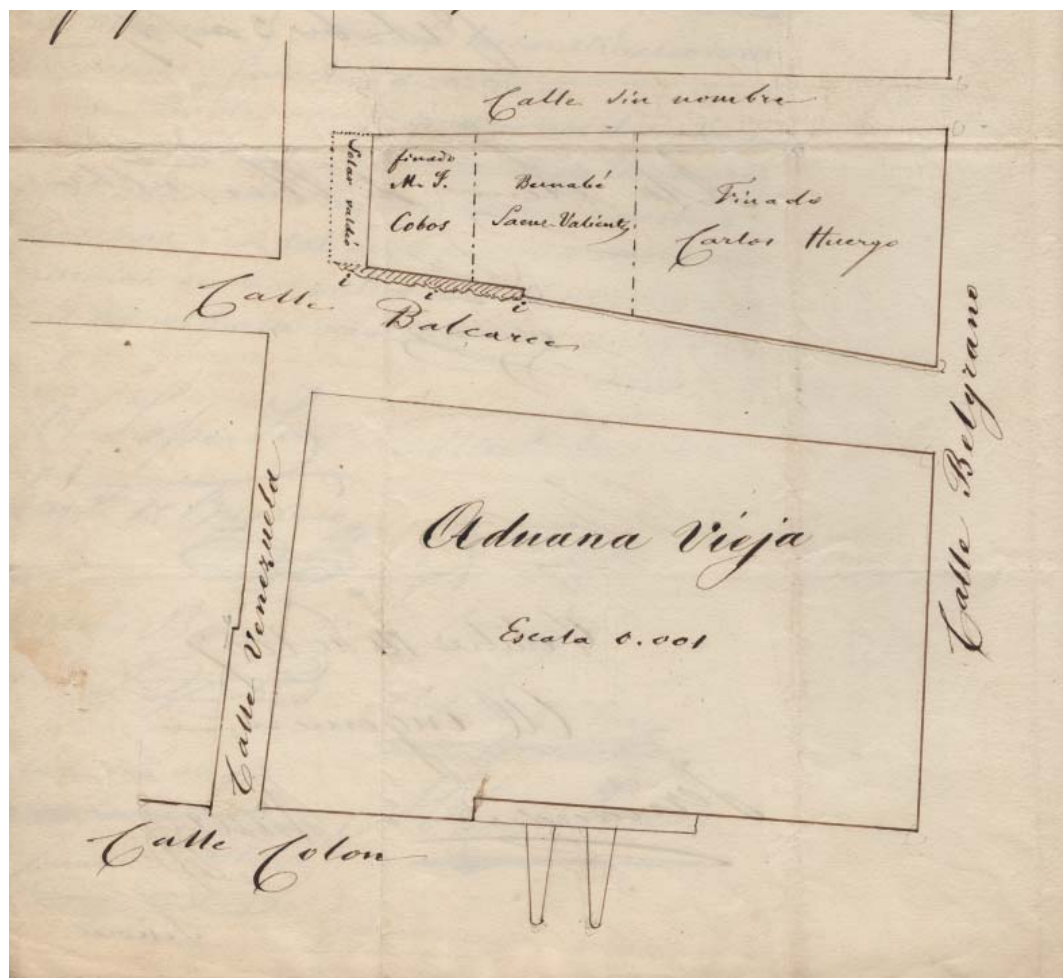 Calle sin nombre
Solar valdío
finado
M. J.
Cobos
Bernabé
Saenz-Valiente
Finado
Carlos Huergo
i
i
i
Calle Balcarce
Calle Belgrano
Calle Venezuela
Aduana Vieja
Escala 0.001
Calle Colon